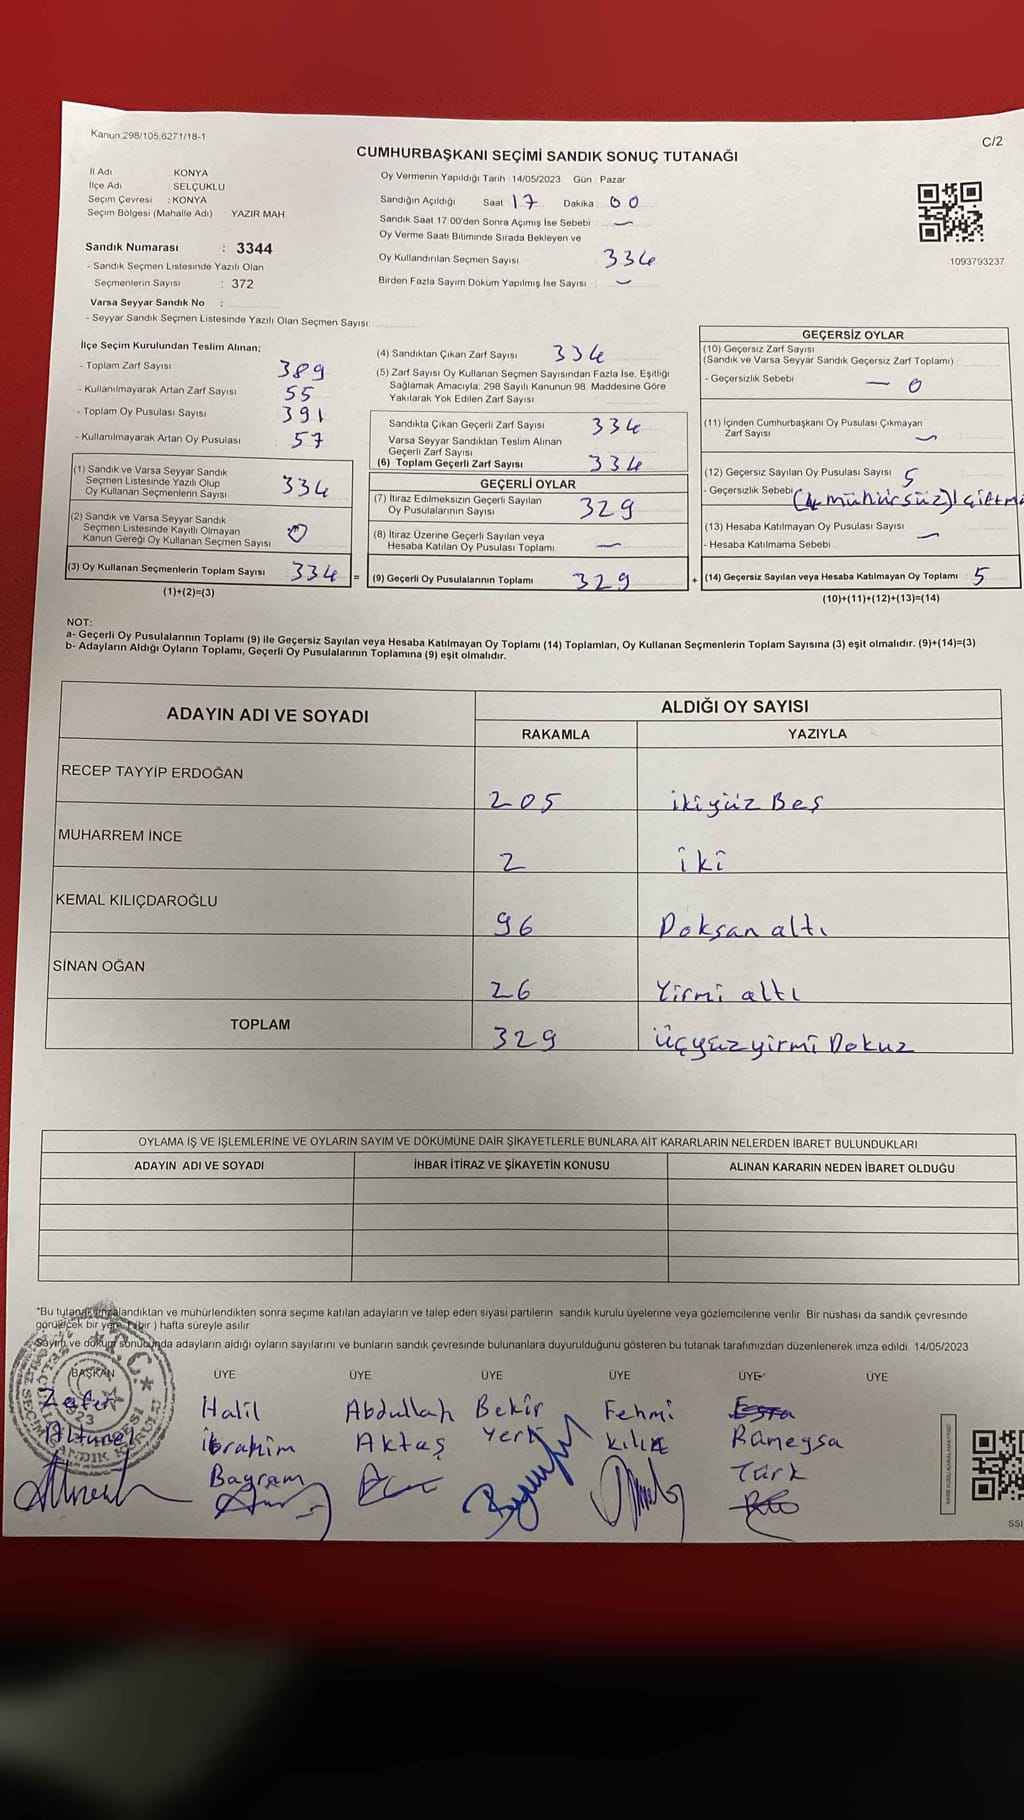 Kanun:298/105,6271/18-1
C/2
CUMHURBAŞKANI SEÇİMİ SANDIK SONUÇ TUTANAĞI
İl Adı KONYA
İlçe Adı SELÇUKLU
Seçim Çevresi : KONYA
Seçim Bölgesi (Mahalle Adı) YAZIR MAH.
Sandık Numarası : 3344
- Sandık Seçmen Listesinde Yazılı Olan
Seçmenlerin Sayısı : 372
Varsa Seyyar Sandık No :
- Seyyar Sandık Seçmen Listesinde Yazılı Olan Seçmen Sayısı:
Oy Vermenin Yapıldığı Tarih :14/05/2023 Gün : Pazar
Sandığın Açıldığı Saat 17 Dakika : 00
Sandık Saat 17:00'den Sonra Açımış İse Sebebi : —
Oy Verme Saati Bitiminde Sırada Bekleyen ve
Oy Kullandırılan Seçmen Sayısı 334
Birden Fazla Sayım Döküm Yapılmış İse Sayısı : —
1093793237
İlçe Seçim Kurulundan Teslim Alınan;
- Toplam Zarf Sayısı 389
- Kullanılmayarak Artan Zarf Sayısı 55
- Toplam Oy Pusulası Sayısı 391
- Kullanılmayarak Artan Oy Pusulası 57
(1) Sandık ve Varsa Seyyar Sandık
Seçmen Listesinde Yazılı Olup
Oy Kullanan Seçmenlerin Sayısı 334
(2) Sandık ve Varsa Seyyar Sandık
Seçmen Listesinde Kayıtlı Olmayan
Kanun Gereği Oy Kullanan Seçmen Sayısı 0
(3) Oy Kullanan Seçmenlerin Toplam Sayısı 334 =
(1)+(2)=(3)
(4) Sandıktan Çıkan Zarf Sayısı 334
(5) Zarf Sayısı Oy Kullanan Seçmen Sayısından Fazla İse, Eşitliği
Sağlamak Amacıyla, 298 Sayılı Kanunun 98. Maddesine Göre
Yakılarak Yok Edilen Zarf Sayısı :
Sandıkta Çıkan Geçerli Zarf Sayısı 334
Varsa Seyyar Sandıktan Teslim Alınan
Geçerli Zarf Sayısı
(6) Toplam Geçerli Zarf Sayısı 334
GEÇERLİ OYLAR
(7) İtiraz Edilmeksizin Geçerli Sayılan
Oy Pusulalarının Sayısı 329
(8) İtiraz Üzerine Geçerli Sayılan veya
Hesaba Katılan Oy Pusulası Toplamı —
(9) Geçerli Oy Pusulalarının Toplamı 329 +
GEÇERSİZ OYLAR
(10) Geçersiz Zarf Sayısı
(Sandık ve Varsa Seyyar Sandık Geçersiz Zarf Toplamı)
- Geçersizlik Sebebi : — 0
(11) İçinden Cumhurbaşkanı Oy Pusulası Çıkmayan
Zarf Sayısı —
(12) Geçersiz Sayılan Oy Pusulası Sayısı 5
- Geçersizlik Sebebi (4 mühürsüz)1 çift
(13) Hesaba Katılmayan Oy Pusulası Sayısı —
- Hesaba Katılmama Sebebi :
(14) Geçersiz Sayılan veya Hesaba Katılmayan Oy Toplamı : 5
(10)+(11)+(12)+(13)=(14)
NOT:
a- Geçerli Oy Pusulalarının Toplamı (9) ile Geçersiz Sayılan veya Hesaba Katılmayan Oy Toplamı (14) Toplamları, Oy Kullanan Seçmenlerin Toplam Sayısına (3) eşit olmalıdır. (9)+(14)=(3)
b- Adayların Aldığı Oyların Toplamı, Geçerli Oy Pusulalarının Toplamına (9) eşit olmalıdır.
ADAYIN ADI VE SOYADI
ALDIĞI OY SAYISI
RAKAMLA YAZIYLA
RECEP TAYYİP ERDOĞAN 205 ikiyüz Beş
MUHARREM İNCE 2 iki
KEMAL KILIÇDAROĞLU 96 Doksan altı
SİNAN OĞAN 26 Yirmi altı
TOPLAM 329 üçyüzyirmi Dokuz
OYLAMA İŞ VE İŞLEMLERİNE VE OYLARIN SAYIM VE DÖKÜMÜNE DAİR ŞİKAYETLERLE BUNLARA AİT KARARLARIN NELERDEN İBARET BULUNDUKLARI
ADAYIN ADI VE SOYADI İHBAR İTİRAZ VE ŞİKAYETİN KONUSU ALINAN KARARIN NEDEN İBARET OLDUĞU
"Bu tutanak imzalandıktan ve mühürlendikten sonra seçime katılan adayların ve talep eden siyasi partilerin sandık kurulu üyelerine veya gözlemcilerine verilir. Bir nushası da sandık çevresinde
görülecek bir yere 1 (bir ) hafta süreyle asılır.
Sayım ve döküm sonucunda adayların aldığı oyların sayılarını ve bunların sandık çevresinde bulunanlara duyurulduğunu gösteren bu tutanak tarafımızdan düzenlenerek imza edildi. 14/05/2023
BAŞKAN ÜYE ÜYE ÜYE ÜYE ÜYE ÜYE
Zafer Halil Abdullah Bekir Fehmi Esra
Altunel ibrahim Aktaş Yerli Kılıç Rümeysa
Bayram Türk
T.C.
1923
SSI